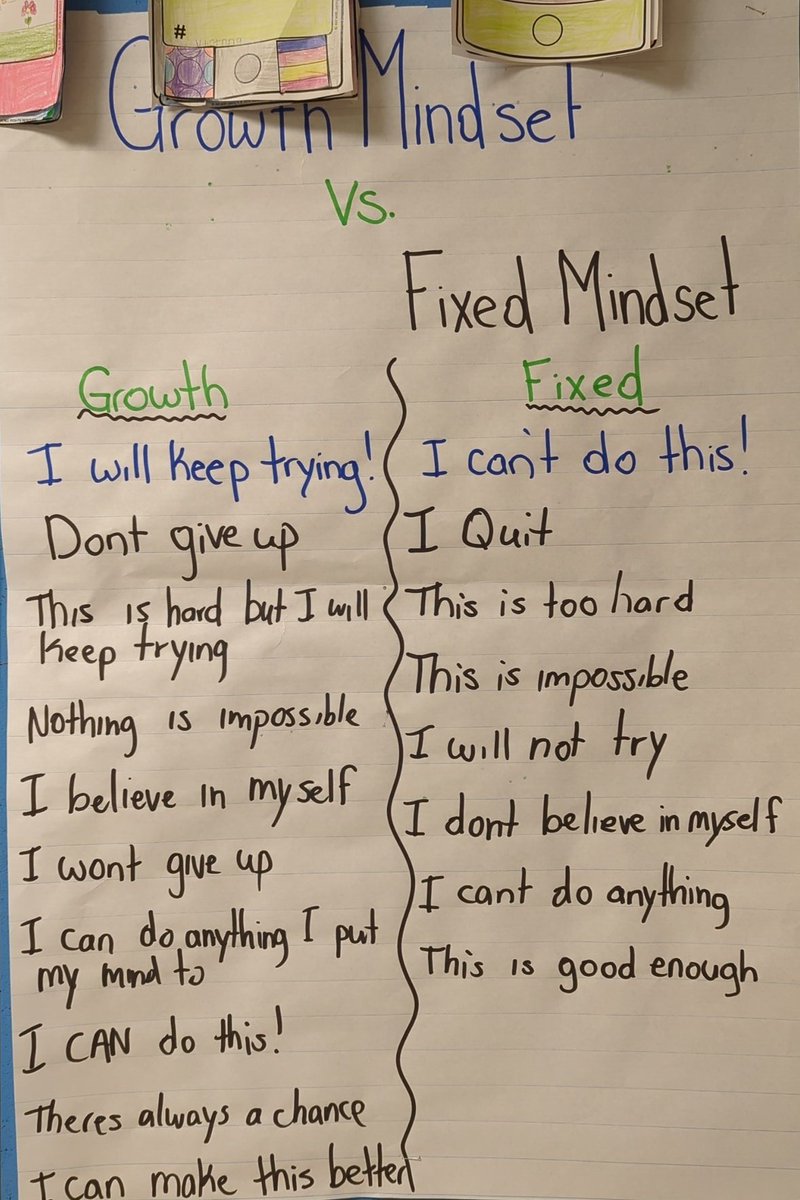 #
Growth Mindset
Vs.
Fixed Mindset
Growth
I will keep trying!
Dont give up
This is hard but I will
keep trying
Nothing is impossible
I believe in myself
I wont give up
I can do anything I put
my mind to
I CAN do this!
Theres always a chance
I can make this better
Fixed
I can't do this!
I Quit
This is too hard
This is impossible
I will not try
I dont believe in myself
I cant do anything
This is good enough